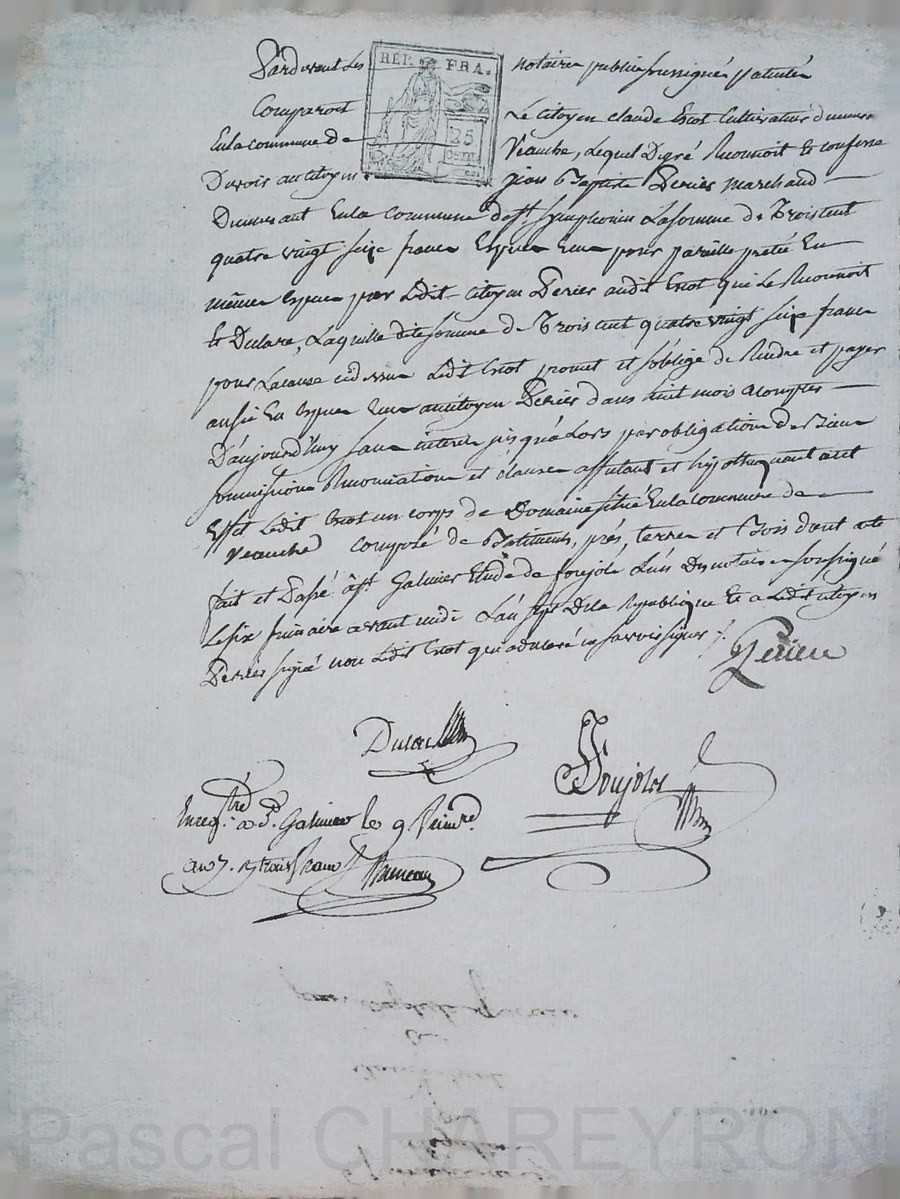 Pardevant Les notaires publics soussignés patentés
RÉP. FRA.
25
CENT.
Comparoit Le citoyen claude Criot Cultivateur demeurant
En la commune de Veauche, Lequel De gré Reconnoit et confesse
Devoir au citoyen jean Baptiste Perier marchand
Demeurant En la commune de st. symphorien La somme de Trois cent
quatre vingt seize francs Espece pour pareille preté En
même Espece par Ledit citoyen Perier audit Criot qui Le Reconnoit
et Declare, Laquelle dite somme de Trois cent quatre vingt seize francs
pour La cause cidessus Ledit Criot promet et s'oblige de Rendre et payer
aussi En Espece au citoyen Perier dans huit mois a compter
D'aujourd'huy sans interet jusqu'a Lors par obligation de Biens
soumissions Renonciations et clauses affectant et hypothequant a cet
Effet Ledit Criot un corps de Domaine situé En La commune de
Veauche composé de Batiments, prés, terres et Bois dont acte
fait et Passé a st Galmier Etude de foujols L'un Des notaires soussigné
Le six frimaire avant midi L'an sept De la Republique Et a Ledit citoyen
Perier signé non Ledit Criot qui a declaré ne savoir signer
Perier
foujols
Enregtré a St. Galmier le 9 frimre.
an 7. R trois francs
Pascal CHAREYRON